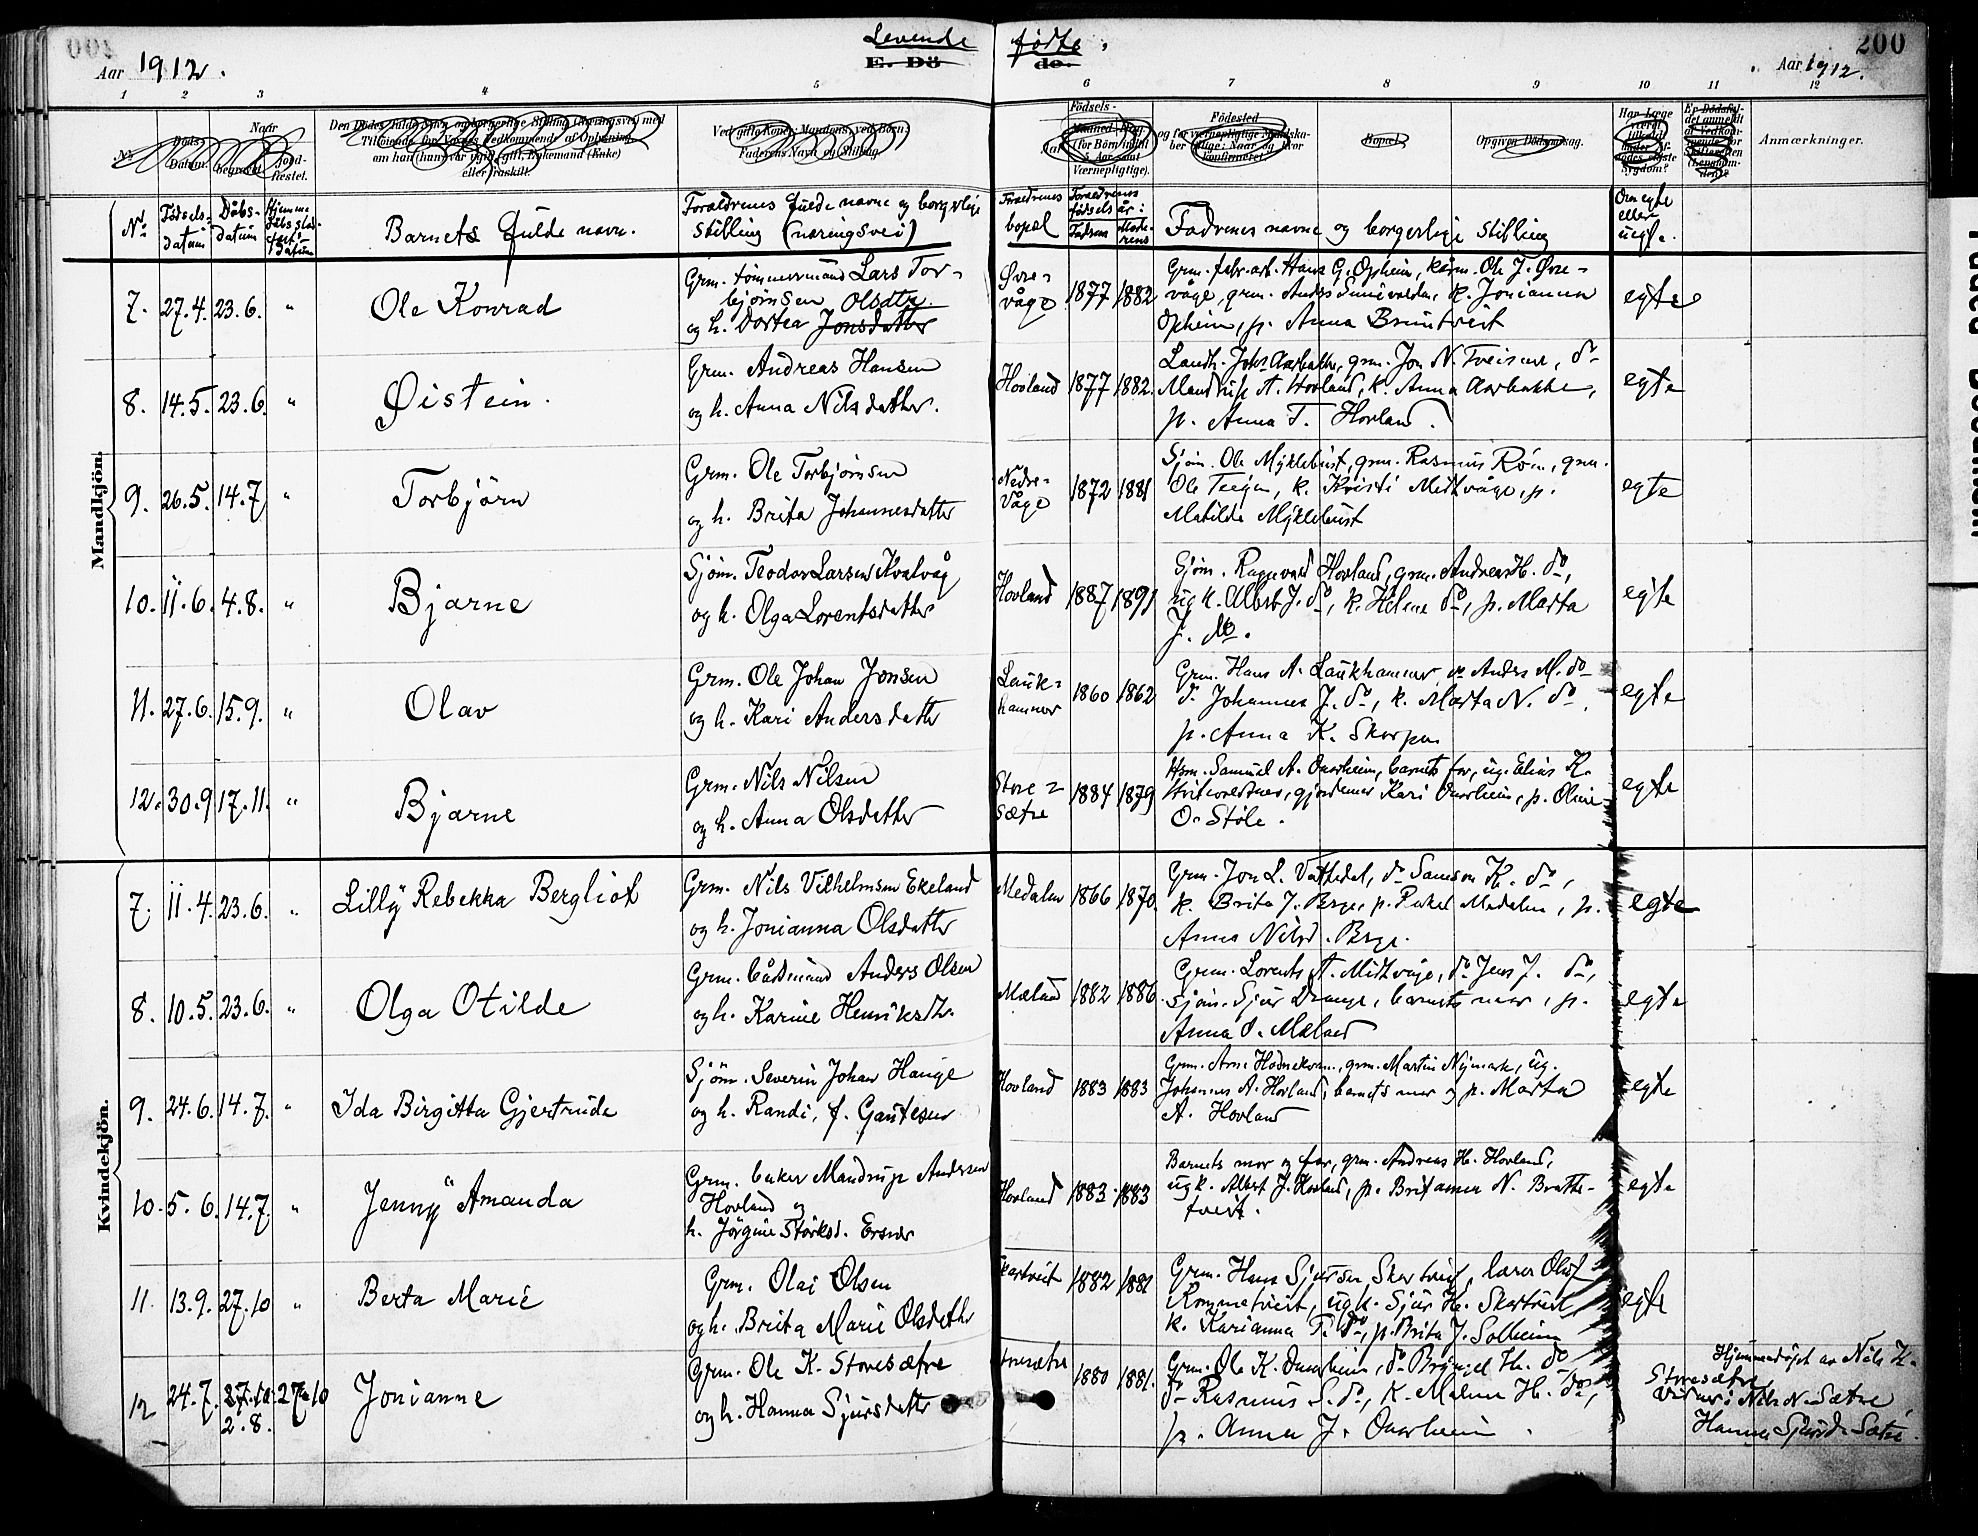 Levende fødte.
E. Dö de.
200
Aar 1912.
Aar 1912.
1 2 3 4 5 6 7 8 9 10 11 12
Anmærkninger.
No Fødsels-datum Dåbs-datum Hjemme dåbs stad-fæst. Datum
Barnets fulde navn.
Forældrenes fulde navne og borgerlige
stilling (næringsvei)
Forældrenes bopæl
Forældrenes fødsels år: Fadrens Moderens
Fadrenes navne og borgerlige stilling
Om egte eller uegte.
Mandkjön.
7. 27.4. 23.6. " Ole Konrad
Grm. tømmermand Lars Tor-
bjørnsen Olsdtr.
og h. Dortea Jonsdatter
Øvre-
våge 1877 1882
Grm. fabr.arb. Hans G. Opheim, kårm. Ole J. Øvre-
våge, grm. Anders Sunnivaldn, k. Jonianna
Opheim, p. Anna Bruntveit
egte
8. 14.5. 23.6. " Øistein.
Grm. Andreas Hansen
og h. Anna Nilsdatter.
Hovland 1877 1882.
Landh. Johs Aarbakke, grm. Jon N. Tveisme, do
Mandrup A. Hovland, k. Anna Aarbakke,
p. Anna T. Hovland.
egte
9. 26.5. 14.7 " Torbjörn
Grm. Ole Torbjørnsen
og h. Brita Johannesdatter
Nedre-
Våge 1872 1881
Sjöm. Ole Myklebust, grm. Rasmus Röen, grm.
Ole Teigen, k. Kristi Midtvåge, p.
Matilde Myklebust
egte
10. 11.6. 4.8. " Bjarne
Sjöm. Teodor Larsen Kvalvåg
og h. Olga Lorentsdatter
Hovland 1887 1891
Sjöm. Ragnvald Hovland, grm. Andreas H. do,
ug k. Albert J. do, k. Helene do, p. Marta
J. do.
egte
11. 27.6. 15.9. " Olav
Grm. Ole Johan Jonsen
og h. Kari Andersdatter
Lauk-
hammer 1860 1862
Grm. Hans A. Laukhammer, do Anders M. do
do Johannes J. do, k. Marta N. do,
p. Anna K. Skorpen
egte
12. 30.9 17.11. " Bjarne
Grm. Nils Nilsen
og h. Anna Olsdatter
Store-
sætre 1884 1879
Hsm. Samuel A. Onarheim, barnets far, ug. Elias K.
gjordemor Kari Onarheim, p. Oline
O. Støle.
egte
Kvindekjön.
7. 11.4. 23.6. " Lilly Rebekka Bergliot
Grm. Nils Vilhelmsen Ekeland
og h. Jonianna Olsdatter
Medalen 1866 1870.
Grm. Jon L. Vattedal, do Samson K. do,
k. Brita J. Berge, p. Rakel Medalen, p.
Anna Nilsd. Berge.
egte
8. 10.5. 23.6. " Olga Otilde
Grm. bådsmand Anders Olsen
og h. Karine Henriksdtr.
Mæland 1882 1886.
Grm. Lorents A. Midtvåge, do Jens J. do,
sjöm. Sjur Drange, barnets mor, p.
Anna O. Mæland
egte
9. 24.6. 14.7. " Ida Birgitta Gjertrude
Sjöm. Severin Johan Hauge
og h. Randi, f. Gautesen
Hovland 1883 1883
Grm. Arne Hodnekvam, grm. Martin Nymark, ug.
Johannes A. Hovland, barnets mor og p. Marta
A. Hovland
egte
10. 5.6. 14.7. " Jenny Amanda
Grm. bøker Mandrup Andersen
Hovland og
h. Jörgine Störksd. Ersvær
Hovland 1883. 1883
Barnets mor og far, grm. Andreas H. Hovland,
ug k. Albert J. Hovland, p. Britanna N. Bratte-
tveit.
egte
11. 13.9. 27.10 " Berta Marie
Grm. Olai Olsen
og h. Brita Marie Olsdatter
Skartveit 1882 1881
Grm. Hans Sjursen Skartveit, lærer Oluf
Rommetveit, ug k. Sjur H. Skartveit
k. Karianna T. do, p. Brita J. Solheim
egte
12 24.7. 27.10. 2.8. 27.10 Jonianne
Grm. Ole K. Storesætre
og h. Hanna Sjursdatter
Storesætre 1880 1881.
Grm. Ole K. Onarheim, do Brynjel H. do
do Rasmus S. do, k. Malene H. do,
p. Anna J. Onarheim.
Hjemmedöpt av Nils K.
Storesætre
Vidner: Nils N. Sætre
Hanna Sjursd. Sætre.